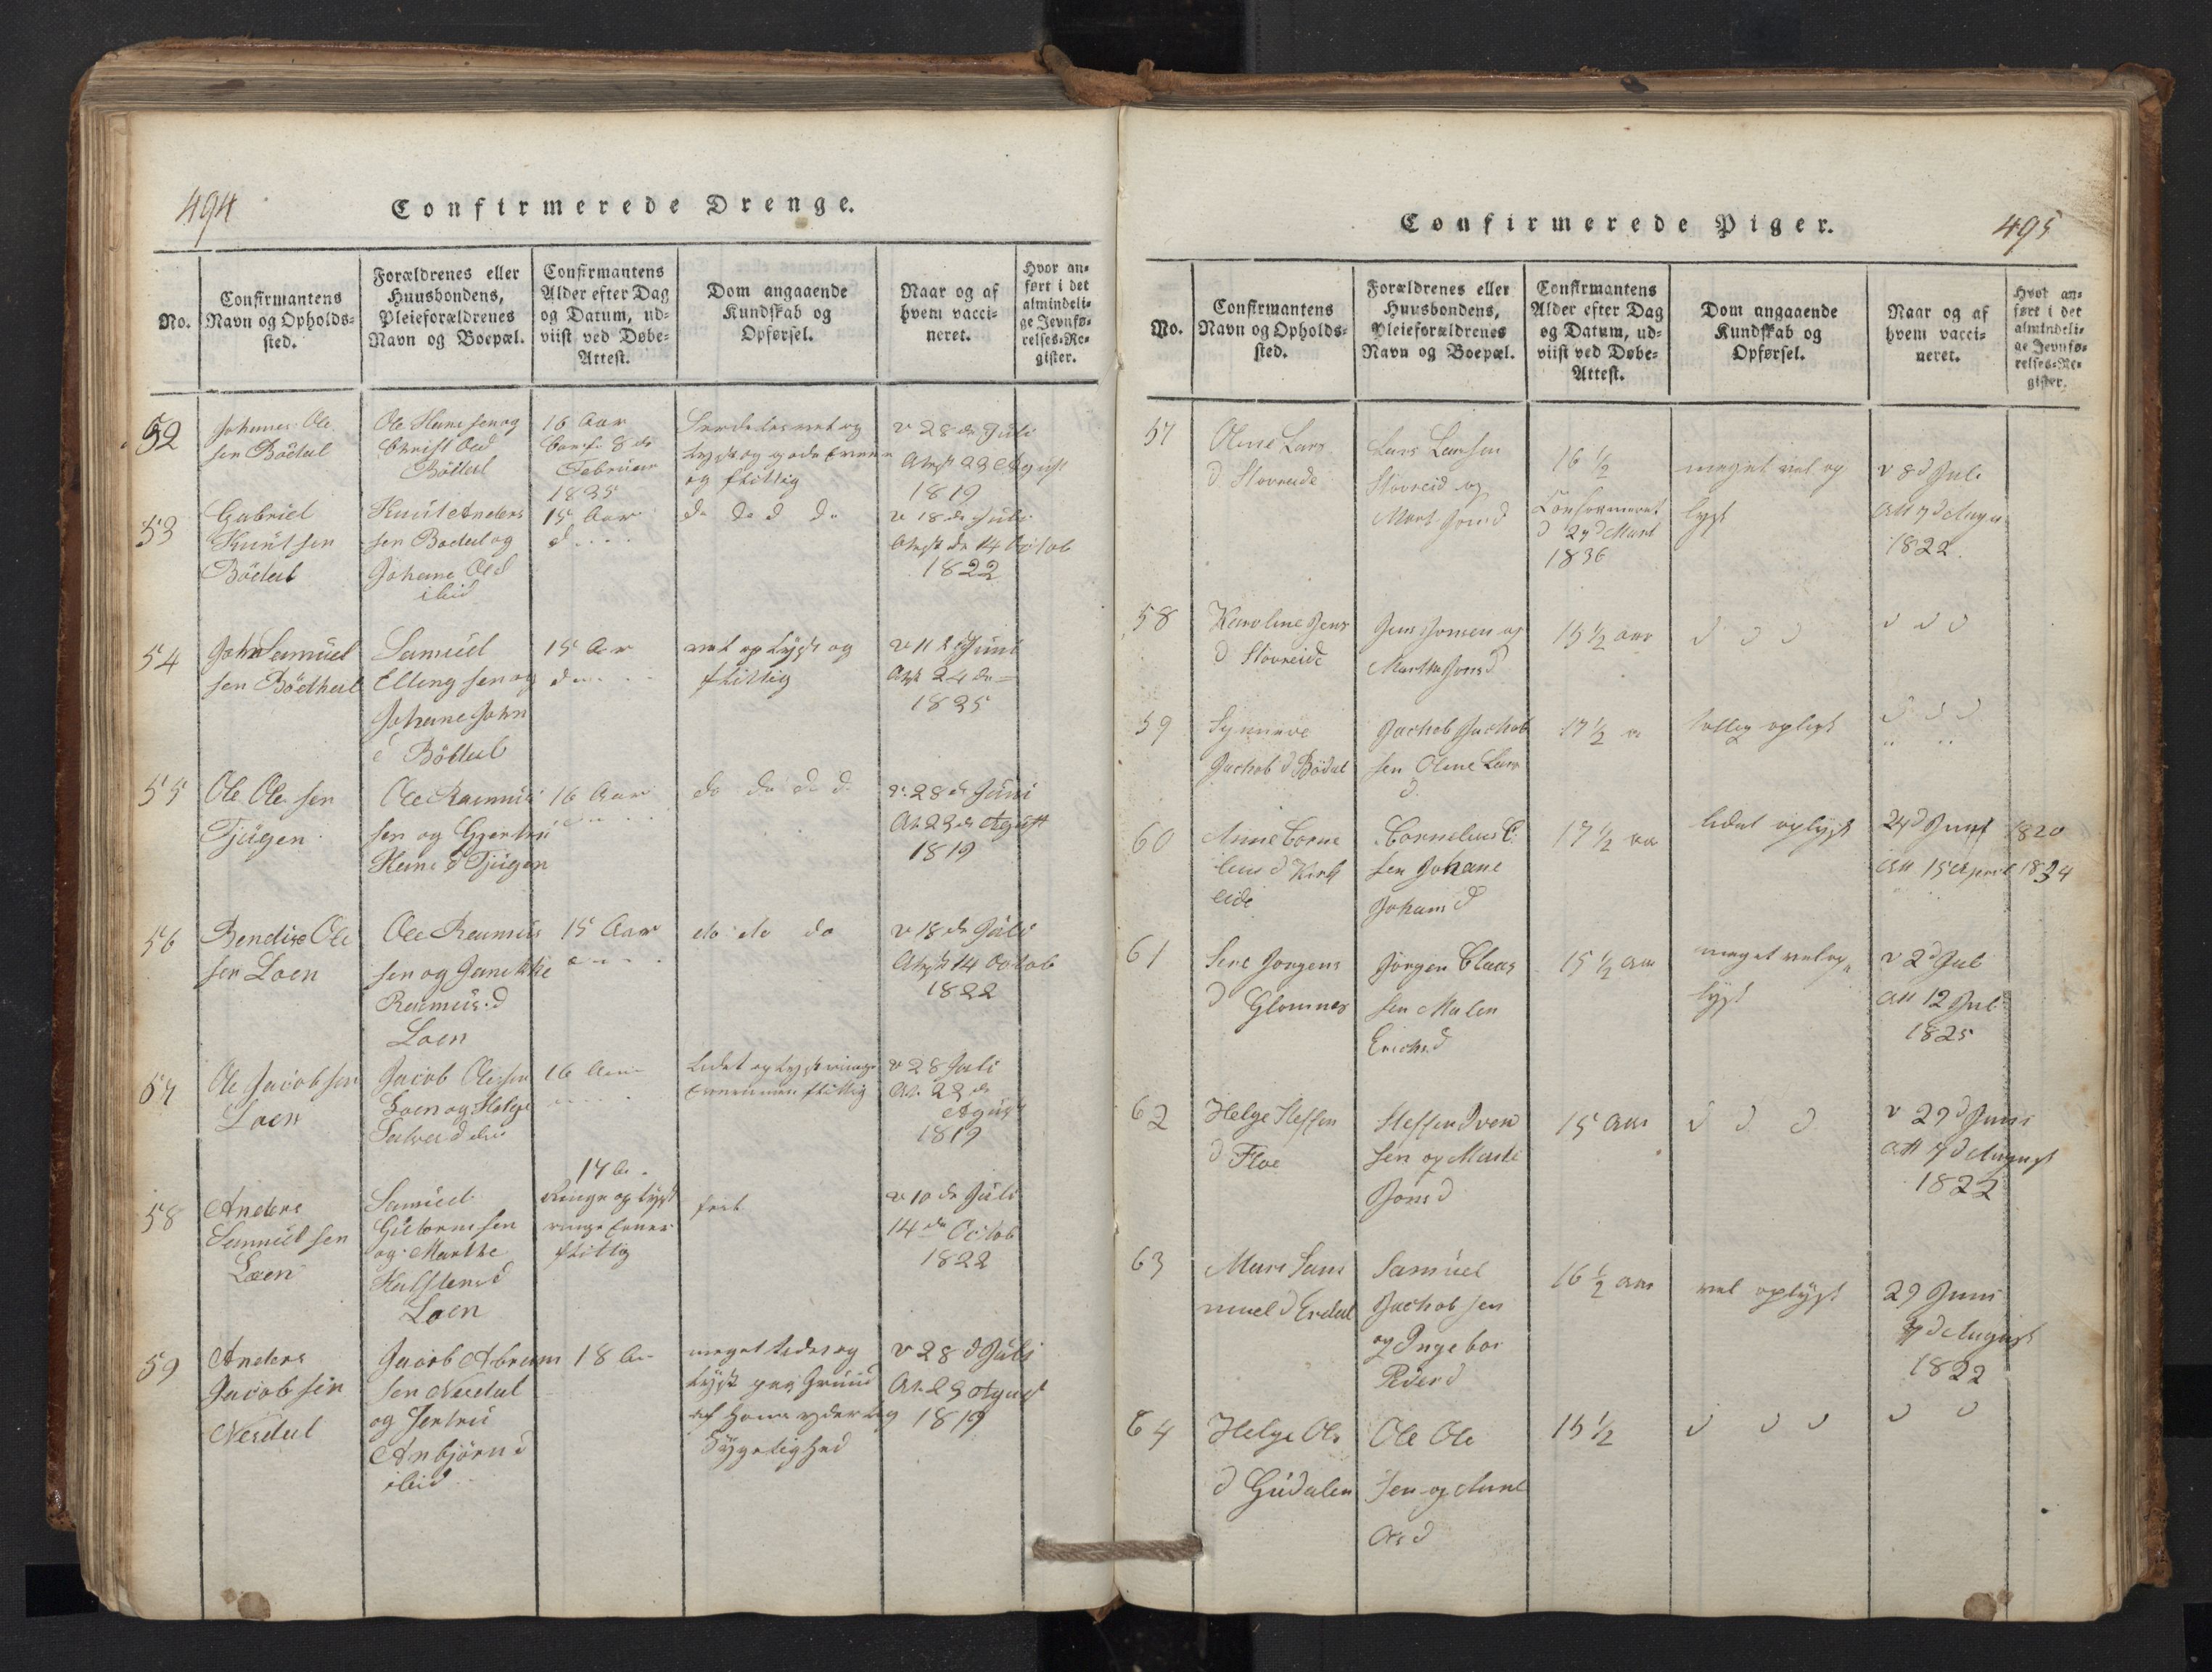 494
Confirmerede Drenge.
No.
Confirmantens
Navn og Opholds-
sted.
Forældrenes eller
Huusbondens,
Pleieforældrenes
Navn og Boepæl.
Confirmantens
Alder efter Dag
og Datum, ud-
viist ved Døbe-
Attest.
Dom angaaende
Kundskab og
Opførsel.
Naar og af
hvem vacci-
neret.
Hvor an-
ført i det
almindeli-
ge Jevnfø-
relses-Re-
gister.
52
Johannes Ole
sen Bödal
Ole Hansen og
Christ Oled
Bödal
16 Aar
Conf. 8 de
Februar
1835
og flittig
v 28 de Juli
1819
53
Gabriel
Knut sen
Bödal
Knut Anders
sen Bodal og
Johane Ols d
ibid
15 Aar
d
do do d do
v 18 de Juli
Atest de 14 Octob
1822
54
John Samuel
sen Bödhal
Samuel
Elling sen og
Johane John
d Bödal
15 Aar
do
vel oplyst og
flittig
v 11 de Juni
At 24 de
1825
55
Ole Ole sen
Tjugen
Ole Rasmus
sen og Gjertru
Hans d Tjugen
16 Aar
do do do d
v. 28 de Juni
At 23 de Agust
1819
56
Bendix Ole
sen Loen
Ole Rasmus
sen og Janikke
Rasmus. d
Loen
15 Aar
do do do
v 18 de Juli
Atest 14 Octob
1822
57
Ole Jacob sen
Loen
Jacob Ole sen
Loen og Helge
16 Aar
Lidet oplyst ringe
Evner men flittig
v 28 Juli
At. 23 de
Agust
1819
58
Anders
Samuel sen
Loen
Samuel
Guttorm sen
og Marthe
Halsten d
Loen
17 Aa.
Ringe oplyst
ringe Evner
flittig
v 10 de Juli
14 de Octob
1822
59
Anders
Jacob sen
Nesdal
Jacob Abram
sen Nesdal
og Jertru
Anbjörn d
ibid
18 Aa
meget lidet op
lyst paa Grund
af hans yderlig
Sygelighed
v 28 d Juli
At. 23 Agust
1819
Confirmerede Piger.
495
No.
Confirmantens
Navn og Opholds-
sted.
Forældrenes eller
Huusbondens,
Pleieforældrenes
Navn og Boepæl.
Confirmantens
Alder efter Dag
og Datum, ud-
viist ved Døbe-
Attest.
Dom angaaende
Kundskab og
Opførsel.
Naar og af
hvem vacci-
neret.
Hvor an-
ført i det
almindeli-
ge Jevnfø-
relses-Re-
gister.
57
Oline Lars
d Stovreide
Lars Larsen
Stovreid og
Mart Jons d
16 1/2
Confirmeret
d 27 d Mart
1836
meget vel op
lyst
v 8 d Juli
Att 7 d Augu
1822.
58
Karoline Jens
d Stovreide
Jens Jonsen og
Marthe Jons d
15 1/2 aar
d d d
d d d
59
Synneve
Jachob d Bödal
Jachob Jachob
sen Oline Lars
d
17 1/2 a
oplyst
d d d
60
Anne Corne
lius d Kirk
eide
Cornelius C.
sen Johane
Johans d
17 1/2 aa
lidet oplyst
24 d Juni 1820
Att 15 April 1834
61
Sire Jorgens
d Glomnes
Jörgen Claus
sen Malen
Erichs d
15 1/2 aar
meget vel op
lyst
v 2 d Jul
Att 12 Jul
1825
62
Helge Steffen
d Floe
Steffen Iven
sen og Marte
Jons d
15 Aar
d d d
v 29 d Juni
Att 7 d August
1822
63
Mari Sam
muel d Erdal
Samuel
Jachob sen
og Ingebor
Peders d
16 1/2 aar
vel oplyst
29 Juni
7 d August
1822
64
Helge Ols
d Gudalen
Ole Ole
sen og Anne
Ols d
15 1/2
d d d
d d